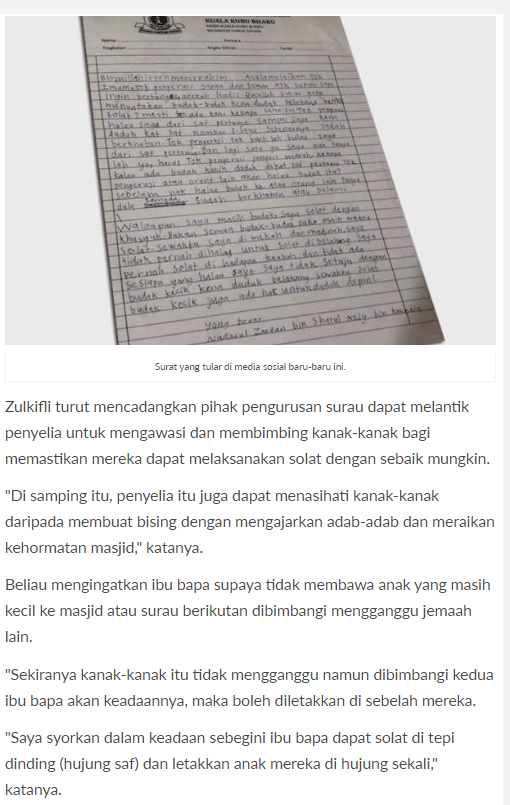 KUALA KUBU BHARU
Nama
Perkara
Tingkatan
Angka Giliran
Tarikh
Tok
Imam, Tok pengerusi surau dan semua AJK surau saya
ingin bertanya, adakah hadis S.a.w yang
menyatakan budak-budak kena duduk belakang ketika
solat? mesti tak ada kan. kenapa semalam Tok pengerusi
halau saya dari saf pertama sampai saya kena
duduk kat saf nombor 3. Saya sebenarnya sudah
berkhatan. Tok pengerusi tak boleh lah halau saya
dari saf pertama. Dan lagi satu ya saya nak tanya
lah ya, Tok pengerusi jangan marah kenapa
kalau ada budak kecik duduk dekat saf pertama Tok
pengerusi atau orang lain akan halau budak itu?
sebelum nak halau budak atau orang lain tanya
sudah berkhatan atau belum.
Walaupun saya masih budak. Saya solat dengan
khusyuk. Bukan semua budak-budak suka main waktu
solat. Sewaktu saya di mekah dan madinah saya
tidak pernah dihalau untuk solat di belakang. Saya
pernah solat di hadapan kaabah dan tidak ada
sesiapa yang halau saya. Saya tidak setuju dengan
budak kecik kena duduk belakang sewaktu solat
budak kecik juga ada hak untuk duduk depan!
Yang benar
bin bin
Surat yang tular di media sosial baru-baru ini.
Zulkifli turut mencadangkan pihak pengurusan surau dapat melantik
penyelia untuk mengawasi dan membimbing kanak-kanak bagi
memastikan mereka dapat melaksanakan solat dengan sebaik mungkin.
"Di samping itu, penyelia itu juga dapat menasihati kanak-kanak
daripada membuat bising dengan mengajarkan adab-adab dan meraikan
kehormatan masjid," katanya.
Beliau mengingatkan ibu bapa supaya tidak membawa anak yang masih
kecil ke masjid atau surau berikutan dibimbangi mengganggu jemaah
lain.
"Sekiranya kanak-kanak itu tidak mengganggu namun dibimbangi kedua
ibu bapa akan keadaannya, maka boleh diletakkan di sebelah mereka.
"Saya syorkan dalam keadaan sebegini ibu bapa dapat solat di tepi
dinding (hujung saf) dan letakkan anak mereka di hujung sekali,"
katanya.